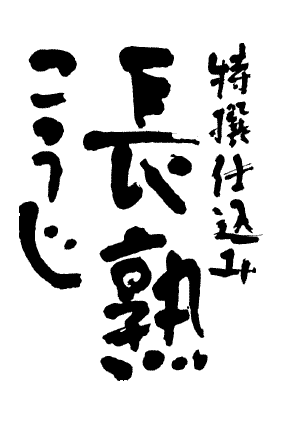 特撰仕込み
長熟
こうじ